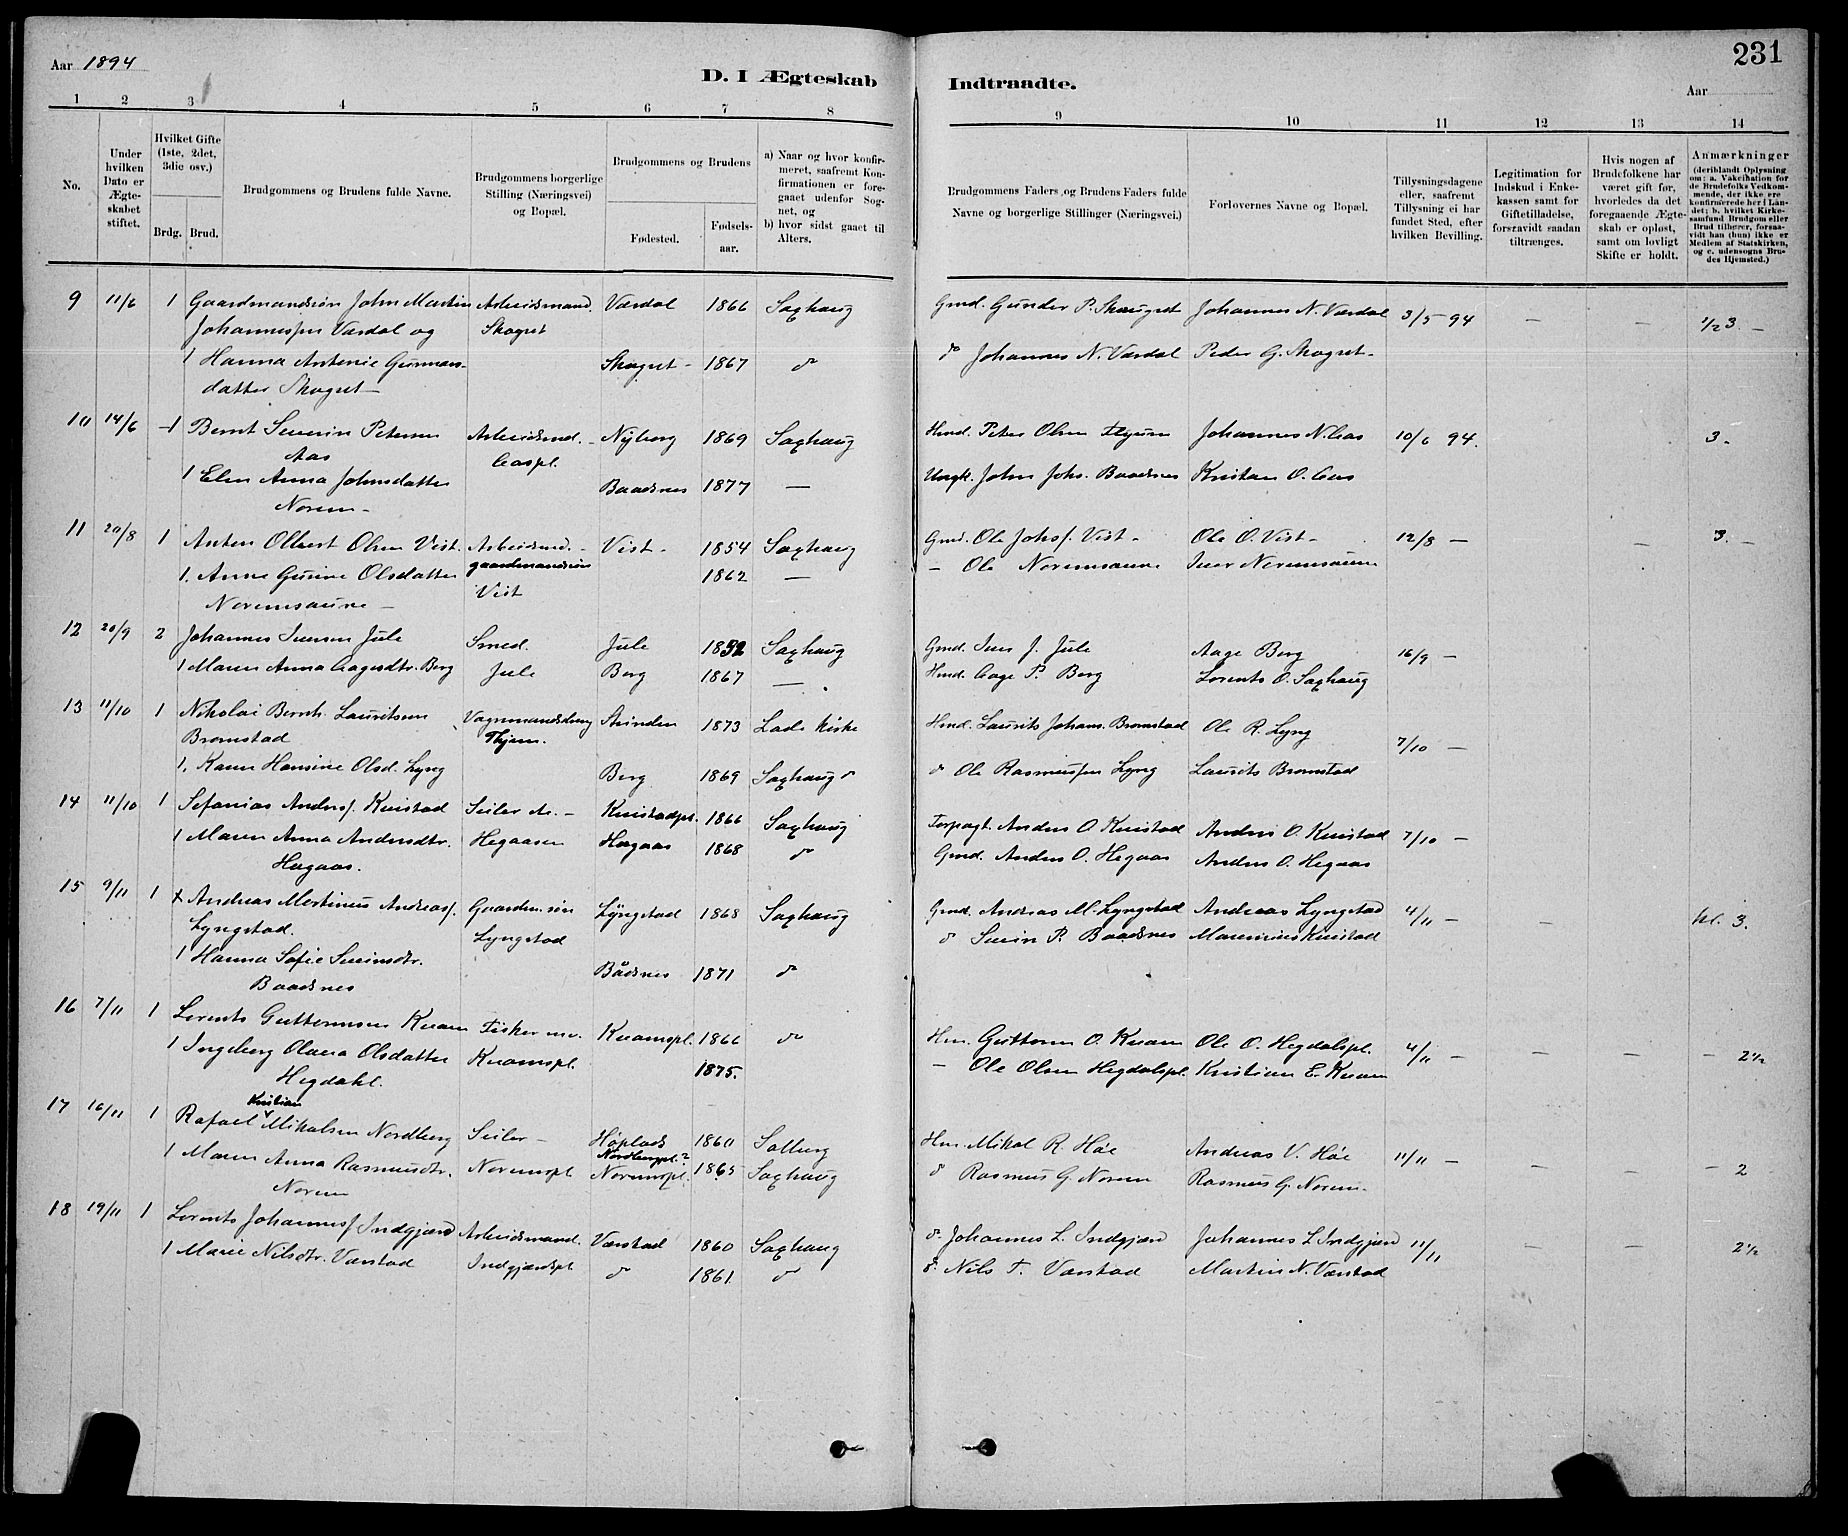 Aar 1894
D. I Ægteskab
1 2 3 4 5 6 7 8
No.
Under hvilken Dato er Ægteskabet stiftet.
Hvilket Gifte (1ste, 2det, 3die osv.)
Brdg. Brud.
Brudgommens og Brudens fulde Navne.
Brudgommens borgerlige Stilling (Næringsvei) og Bopæl.
Brudgommens og Brudens
Fødested.
Fødselsaar.
a) Naar og hvor konfirmeret, saafremt Konfirmationen er foregaaet udenfor Sognet, og
b) hvor sidst gaaet til Alters.
9 11/6 1 Gaardmandssøn John Martin Arbeidsmand. Værdal 1866 Saxhaug
Johannessen Værdal og Skogset
1 Hanna Antonie Gunnars- Skogset - 1867 do
datter Skogset
10 14/6 1 Bernt Severin Petersen Arbeidsmd. Nyborg 1869 Saxhaug
Aas Aaspl.
1 Elen Anna Johnsdatter Baadsnes 1877 —
Norem -
11 20/8 1 Anton Olbert Olsen Vist. Arbeidsmd. - Vist - 1854 Saxhaug
gaardmandssøn
1. Anne Gusine Olsdatter Vist 1862 —
Noremsaune -
12 20/9 2 Johannes Iversen Jule Smed. Jule 1852 Saxhaug
1 Maren Anna Aagesdtr. Berg Jule Berg 1867 —
13 11/10 1 Nikolai Bernh. Lauritsen Strinden 1873 Lade Kirke
Bromstad
1. Karen Hansine Olsd. Lyng Berg 1869 Saxhaug do
14 11/10 1 Sefanias Anders. Kvistad Seiler Ar. - Kvistadpl. 1866 Saxhaug
1 Maren Anna Andersdtr. Hegaasen Hegaas 1868 do
Hegaas.
15 9/11 1 Andreas Martinus Andreas. Gaardm.søn Lyngstad 1868 Saxhaug
Lyngstad. Lyngstad
1 Hanna Sofie Sevrinsdtr. Bådsnes 1871 do
Baadsnes
16 7/11 1 Lorents Guttormsen Kvam Fisker Kvamspl. 1866 do
1 Ingeborg Olava Olsdatter Kvamspl. 1875.
Hegdahl.
Kristian
17 16/11 1 Rafael Mikalsen Nordberg Seiler - Høplads 1860 Salberg
Nordbergpl.?
1 Maren Anna Rasmusdtr. Noremspl Noremspl. 1865 Saxhaug
Norem
18 19/11 1 Lorents Johannes. Indgjærd Arbeidsmand. Værstad 1860 Saxhaug
1 Marie Nilsdtr. Værstad Indgjærdspl do 1861. do
231
Indtraadte.
Aar
9 10 11 12 13 14
Brudgommens Faders og Brudens Faders fulde Navne og borgerlige Stillinger (Næringsvei.)
Forlovernes Navne og Bopæl.
Tillysningsdagene eller, saafremt Tillysning ei har fundet Sted, efter hvilken Bevilling.
Legitimation for Indskud i Enkekassen samt for Giftetilladelse, forsaavidt saadan tiltrænges.
Hvis nogen af Brudefolkene har været gift før, hvorledes da det foregaaende Ægteskab er opløst, samt om lovligt Skifte er holdt.
Anmærkninger (deriblandt Oplysning om: a. Vakcination for de Brudefolks Vedkommende, der ikke ere konfirmerede her i Landet; b. hvilket Kirkesamfund Brudgom eller Brud tilhører, forsaavidt han (hun) ikke er Medlem af Statskirken, og c. udensogns Brudes Hjemsted.)
Gmd. Gunder P. Skaugset Johannes N. Værdal 3/5 - 94 — — 1/2 3. —
do Johannes N. Værdal Peder G. Skogset -
Hmd. Peter Olsen Johannes N. Aas 10/6 94. 3.
Ungk. John Johs. Baadsnes Kristian O. Aas
Gmd. Ole Johs. Vist - Ole O. Vist - 12/8 — — 3. —
— Ole Noremsaune Iver Noremsaune
Gmd. Iver J. Jule Aage Berg 16/9 —
Hmd. Aage P. Berg Lorents O. Saxhaug
Hmd. Laurits Johans. Bromstad Ole R. Lyng 7/10 —
do Ole Rasmussen Lyng Laurits Bromstad
Forpagt. Anders O. Kvistad Anders O. Kvistad 7/10 —
Gmd. Anders O. Hegaas Anders O. Hegaas
Gmd. Andreas M. Lyngstad Andreas Lyngstad 4/11 — — kl. 3.
do Sevrin P. Baadsnes Marenius Kvistad
Hm. Guttorm O. Kvam Ole O. Hegdalspl. 4/11 — — — — 2 1/2
— Ole Olsen Hegdalspl. Kristian E. Kvam
Hm. Mikal R. Høe Andreas V. Høe 11/11 — — — — 2
do Rasmus G. Norem Rasmus G. Norem.
do Johannes L. Indgjærd Johannes L. Indgjærd 11/11 — — 2 1/2
do Nils T. Værstad Martin N. Værstad